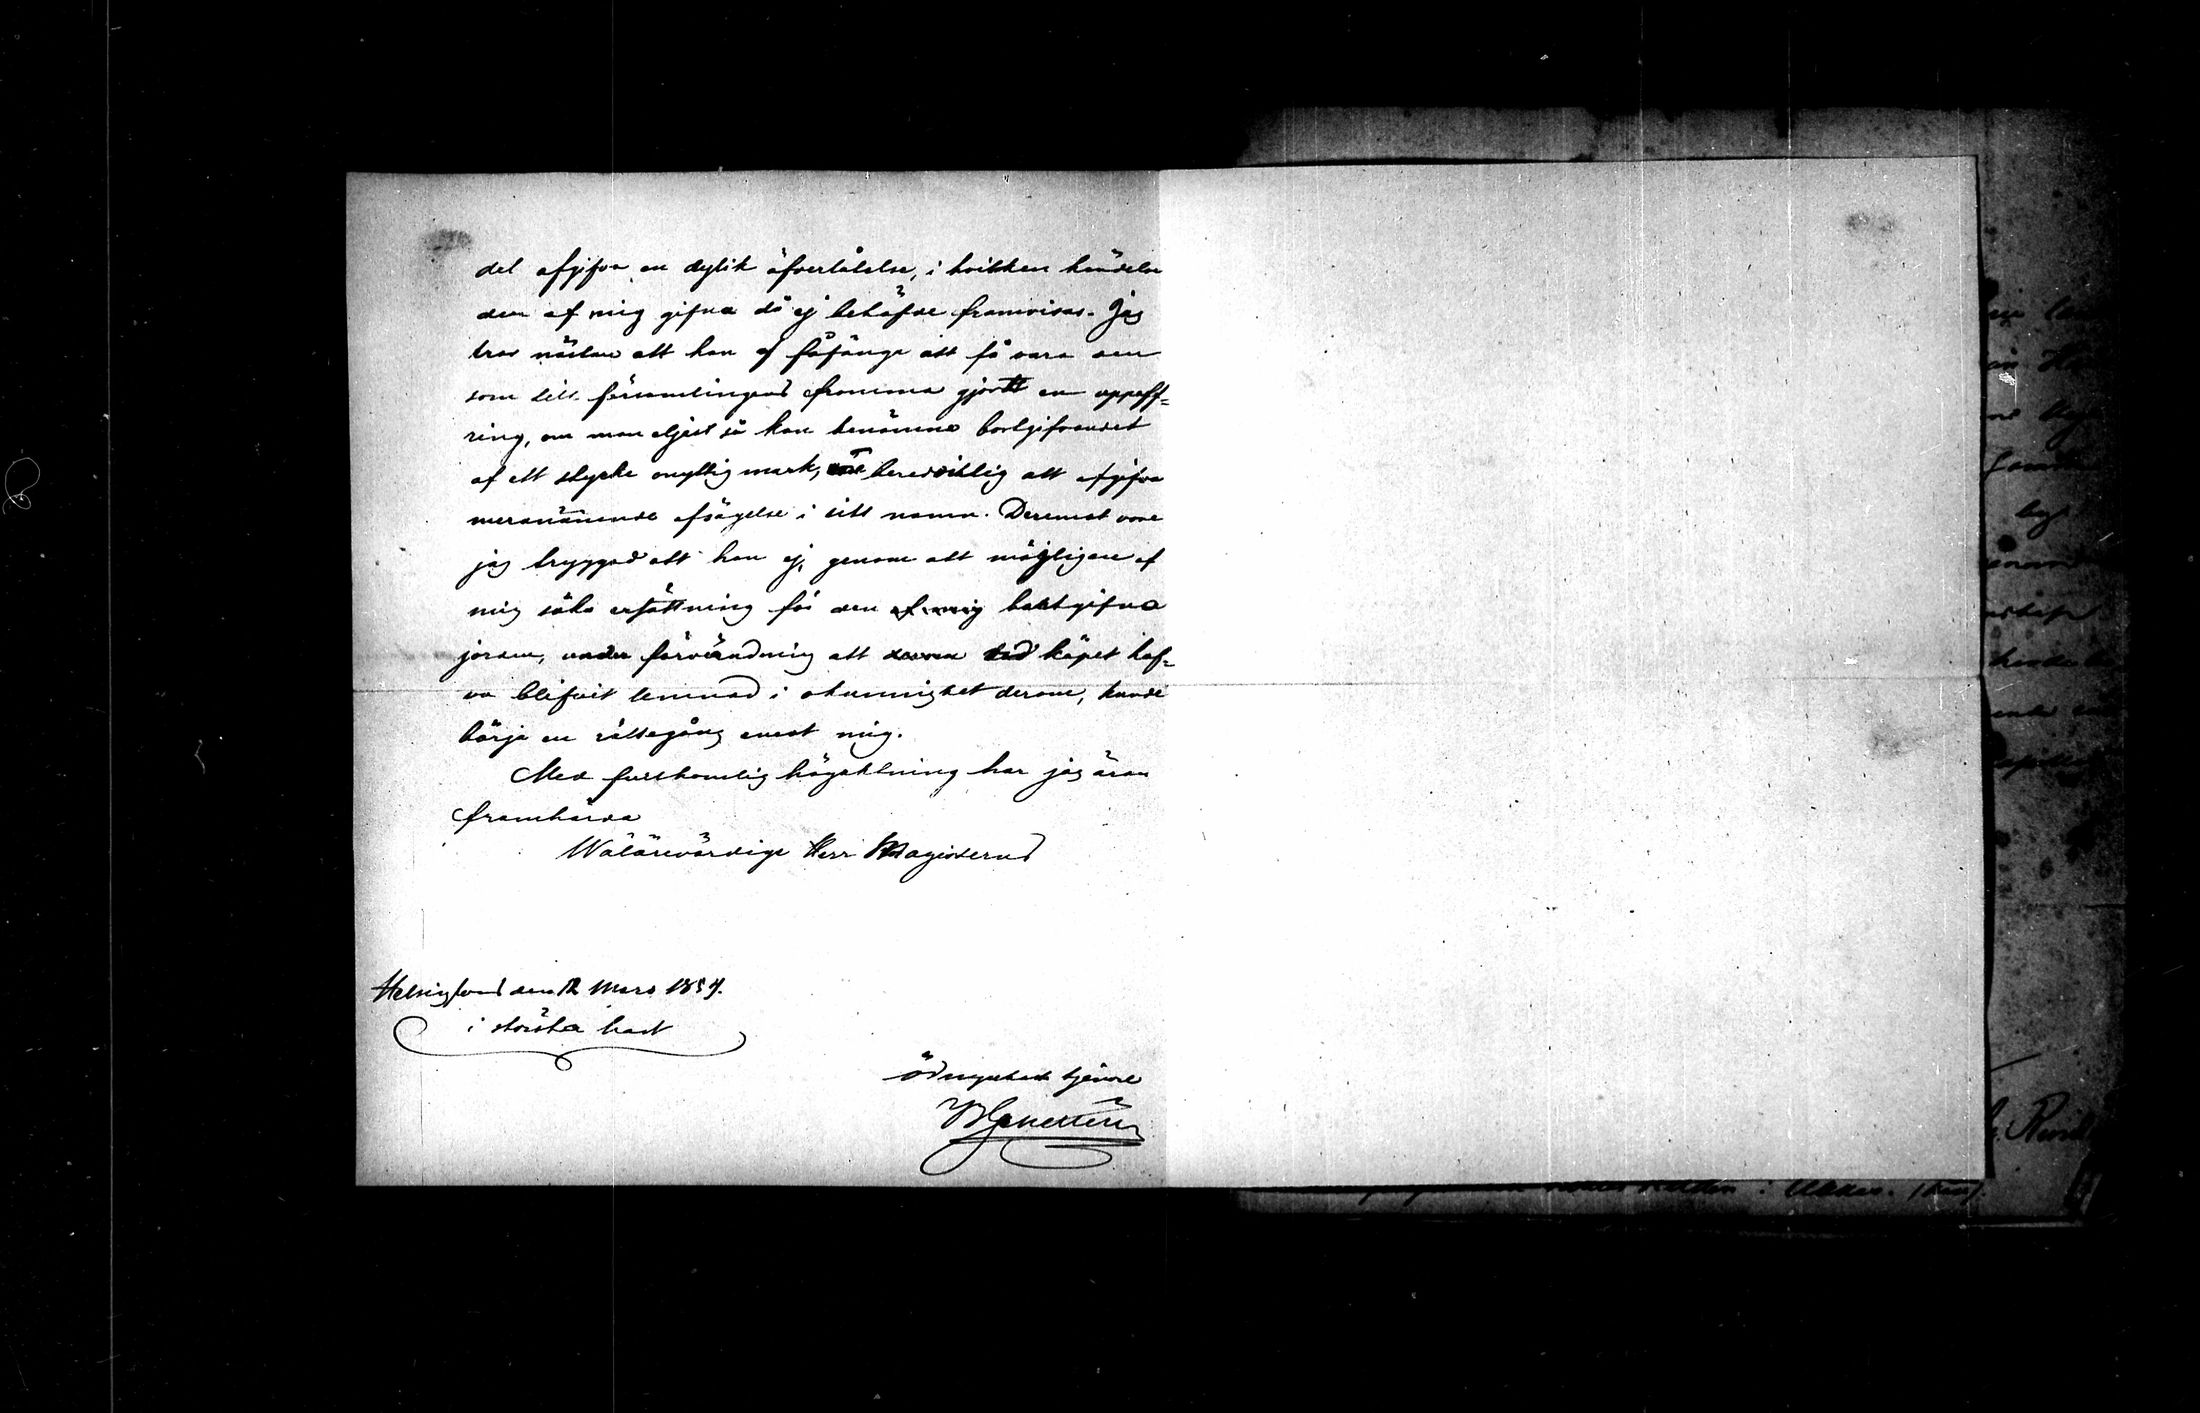 det afgifva en dylik öfverlåtelse, i hvilken händelse
den af mig gifna då ej behöfde framvisas. Jag
tror nästan att han af fåfänga att få vara den
som till församlingens fromma gjordt en uppoff=
ring, om man eljest så kan benämna bortgifvandet
af ett stycke onyttig mark, beredvillig att afgifva
meranämnde afsägelse i sitt namn. Deremot vore
jag tryggad att han ej, genom att möjligen af
mig söka ersättning för den af mig bortgifna
jorden, under förvändning att köpet haf=
va blifvit lemnad i okunnighet derom, kunde
börja en rättegång emot mig.
Med fullkomlig högaktning har jag äran
framhärda
Wälärevördige Herr Magisterns
Helsingfors den 12 Mars 1857.
i största hast
ödmjukaste tjenare